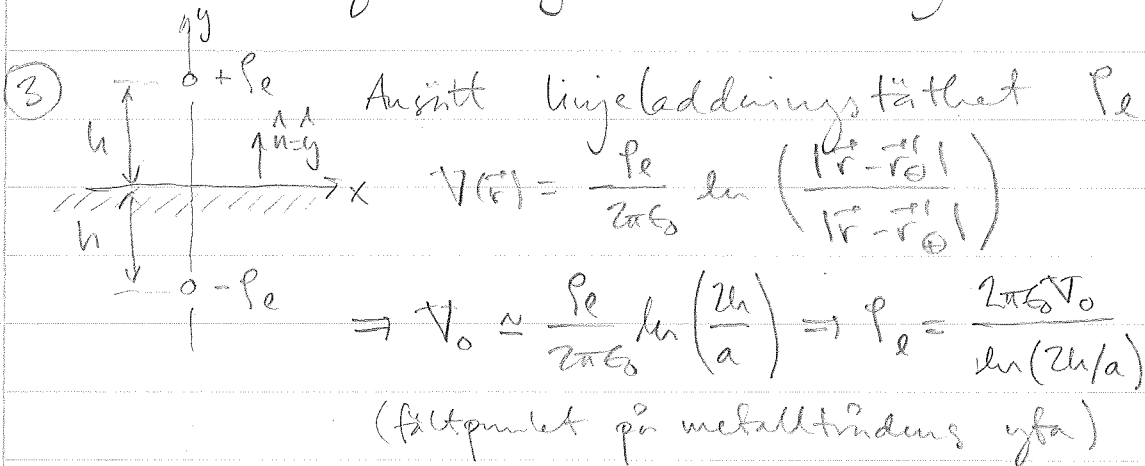 y
③ +ρℓ Ansätt linjeladdningstäthet ρℓ
h n̂=ŷ
x V(r⃗) = ρℓ/(2πε₀) ln(|r⃗-r⃗'⊖|/|r⃗-r⃗'⊕|)
h
-ρℓ ⇒ V₀ ≃ ρℓ/(2πε₀) ln(2h/a) ⇒ ρℓ = 2πε₀V₀/ln(2h/a)
(fältpunkt på metalltrådens yta)